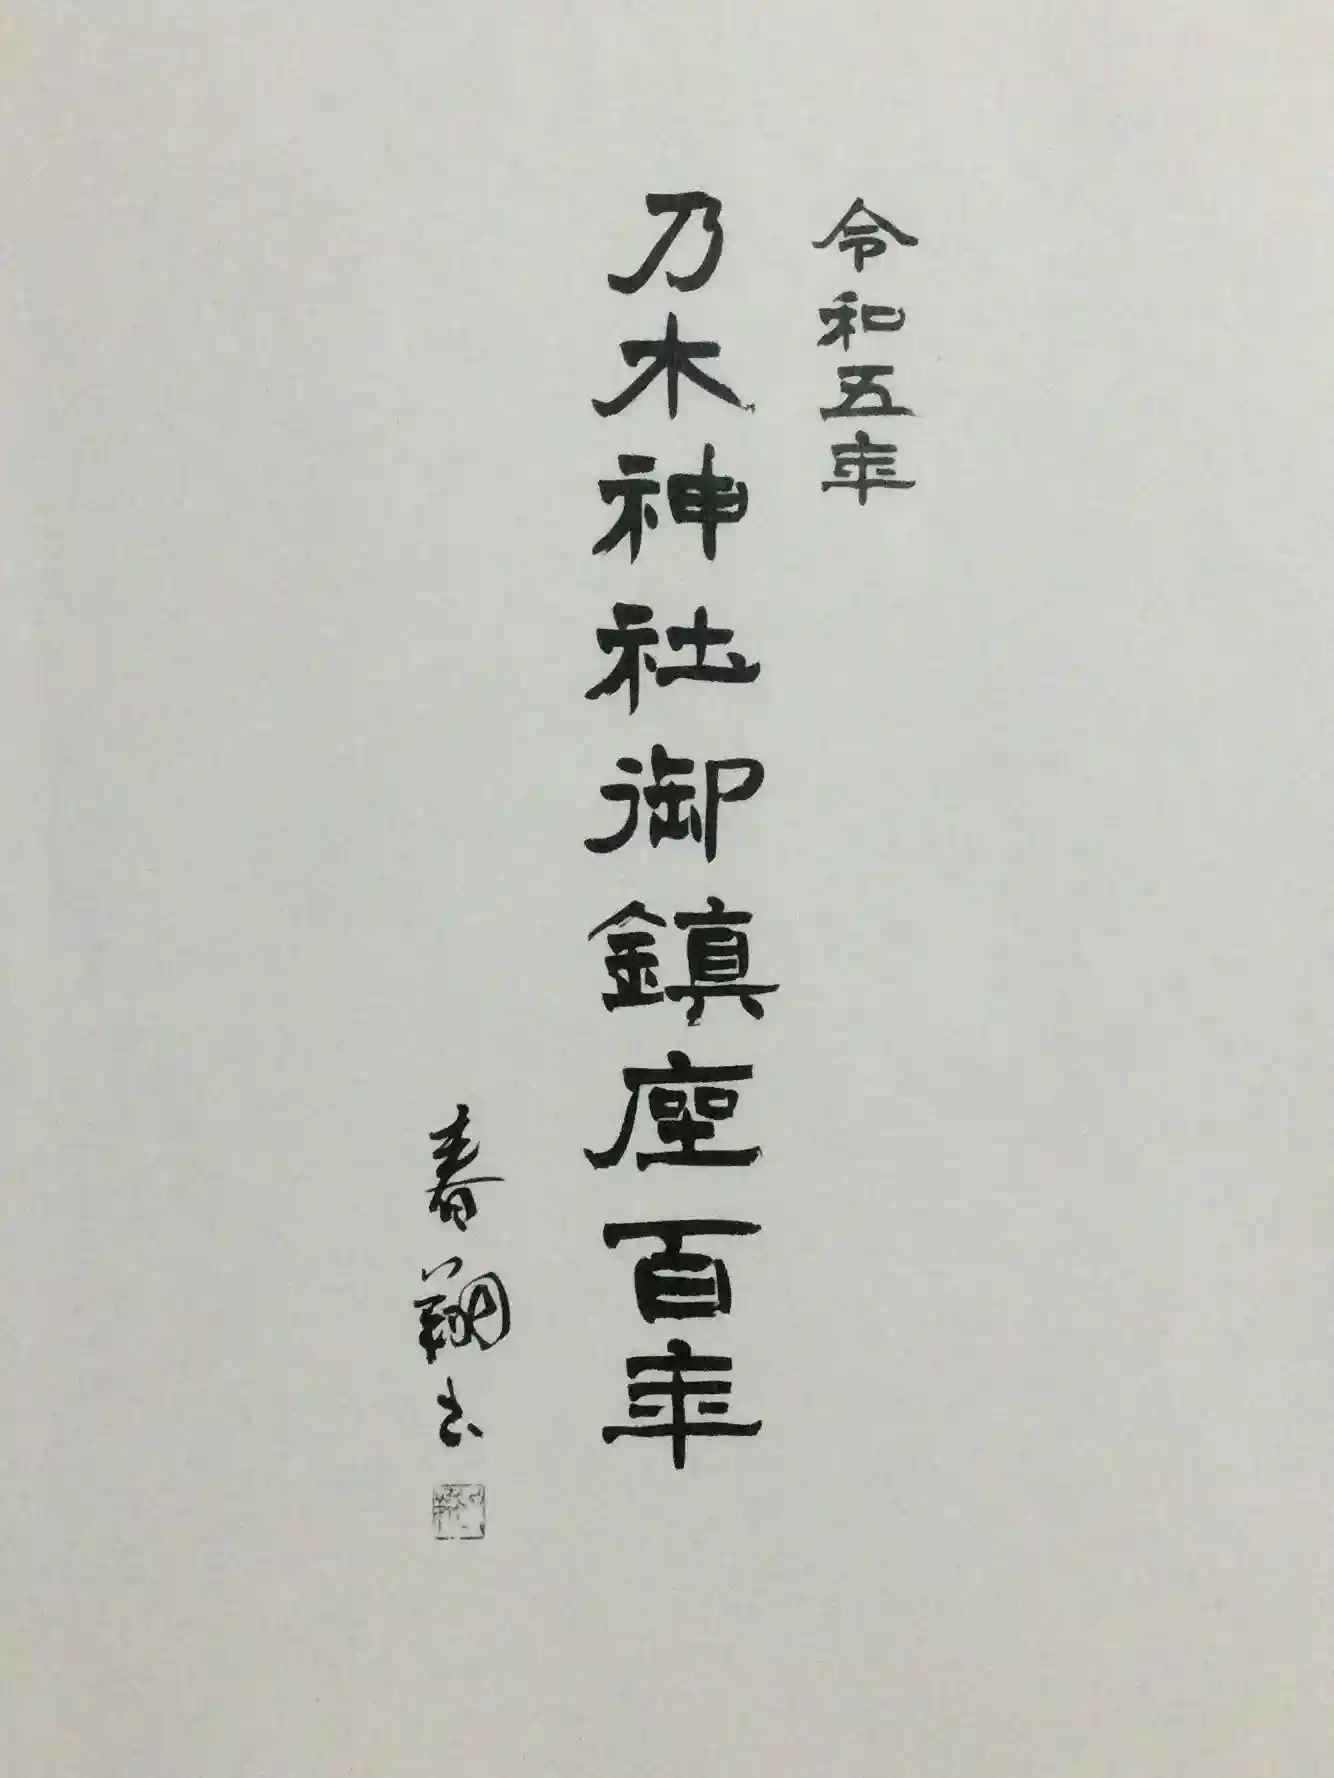 令和五年
乃木神社御鎮座百年
春翔書